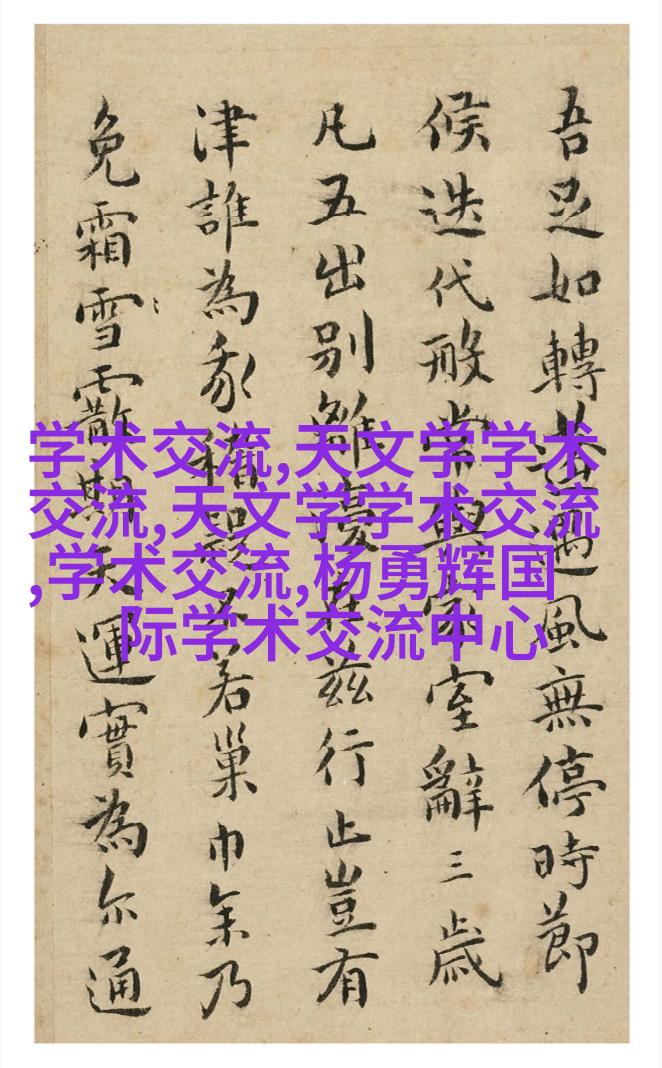 吾足如轉蓬遇風無停時節
候迭代般常與家室辭三歲
凡五出別雖在茲行止豈有
津誰為我稽疑不若巢巾乃
免霜雪霰天運實為尔通
学术交流,天文学学术
交流,天文学学术交流
,学术交流,杨勇辉国
际学术交流中心